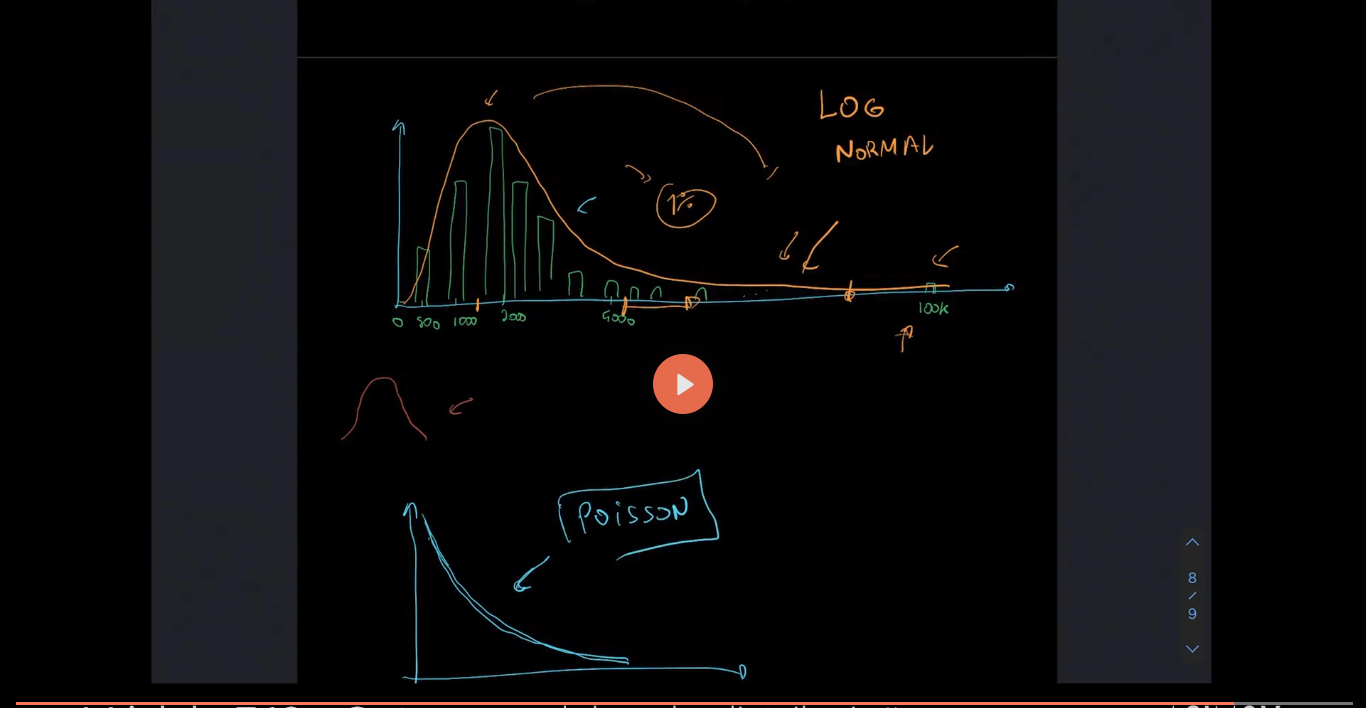 LOG
NORMAL
1%
0 500 1000 2000 5000 100K
POISSON
8
/
9